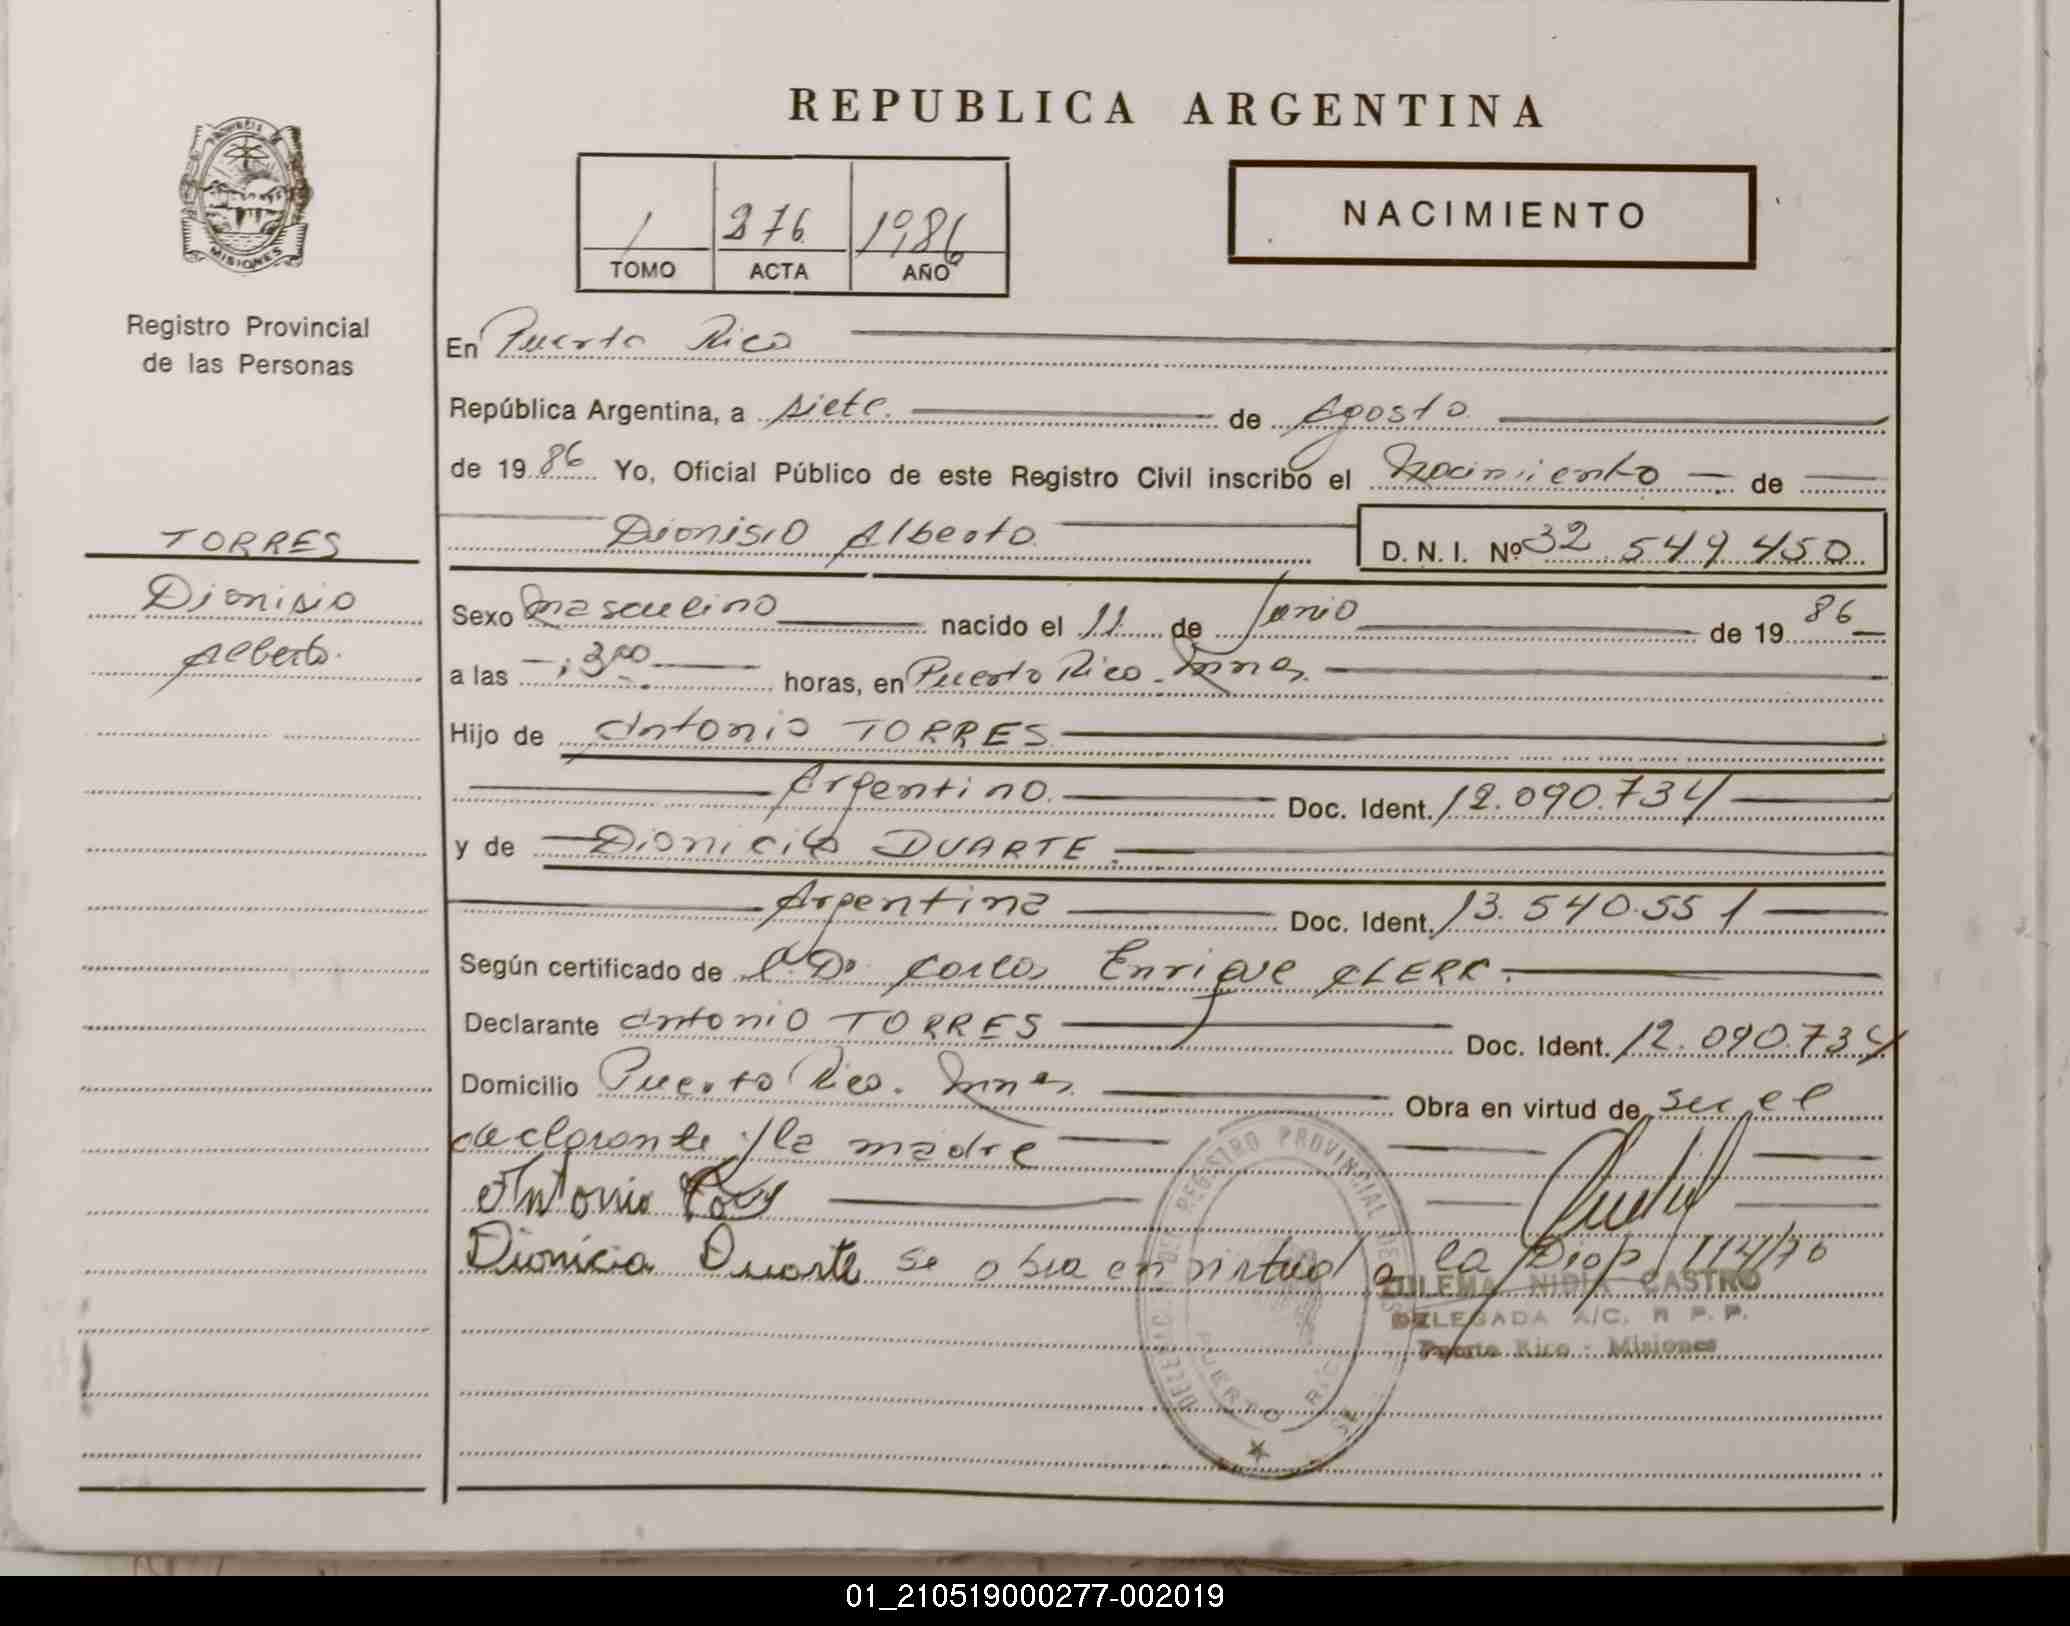 REPUBLICA ARGENTINA
PROVINCIA DE
MISIONES
Registro Provincial
de las Personas
1 276 1986
TOMO ACTA AÑO
NACIMIENTO
En Puerto Rico
República Argentina, a siete de Agosto
de 1986 Yo, Oficial Público de este Registro Civil inscribo el Nacimiento de
Dionisio Alberto D.N.I. Nº 32.549.450
TORRES
Dionisio
Alberto.
Sexo Masculino nacido el 11 de Junio de 1986
a las 3,00 horas, en Puerto Rico. Mnes.
Hijo de Antonio TORRES
Argentino. Doc. Ident. 12.090.734
y de Dionicia DUARTE.
Argentina Doc. Ident. 13.540.551
Según certificado de el Dr. Carlos Enrique CLERK.
Declarante Antonio TORRES Doc. Ident. 12.090.734
Domicilio Puerto Rico. Mnes. Obra en virtud de ser el
declarante y la madre
Antonio
Dionicia Duarte se obra en virtud a la Disp. 114/76
DELEG. REGISTRO PROVINCIAL DE LAS
PUERTO RICO
ZULEMA NIDIA CASTRO
DELEGADA A/C. R. P. P.
Puerto Rico - Misiones
01_210519000277-002019